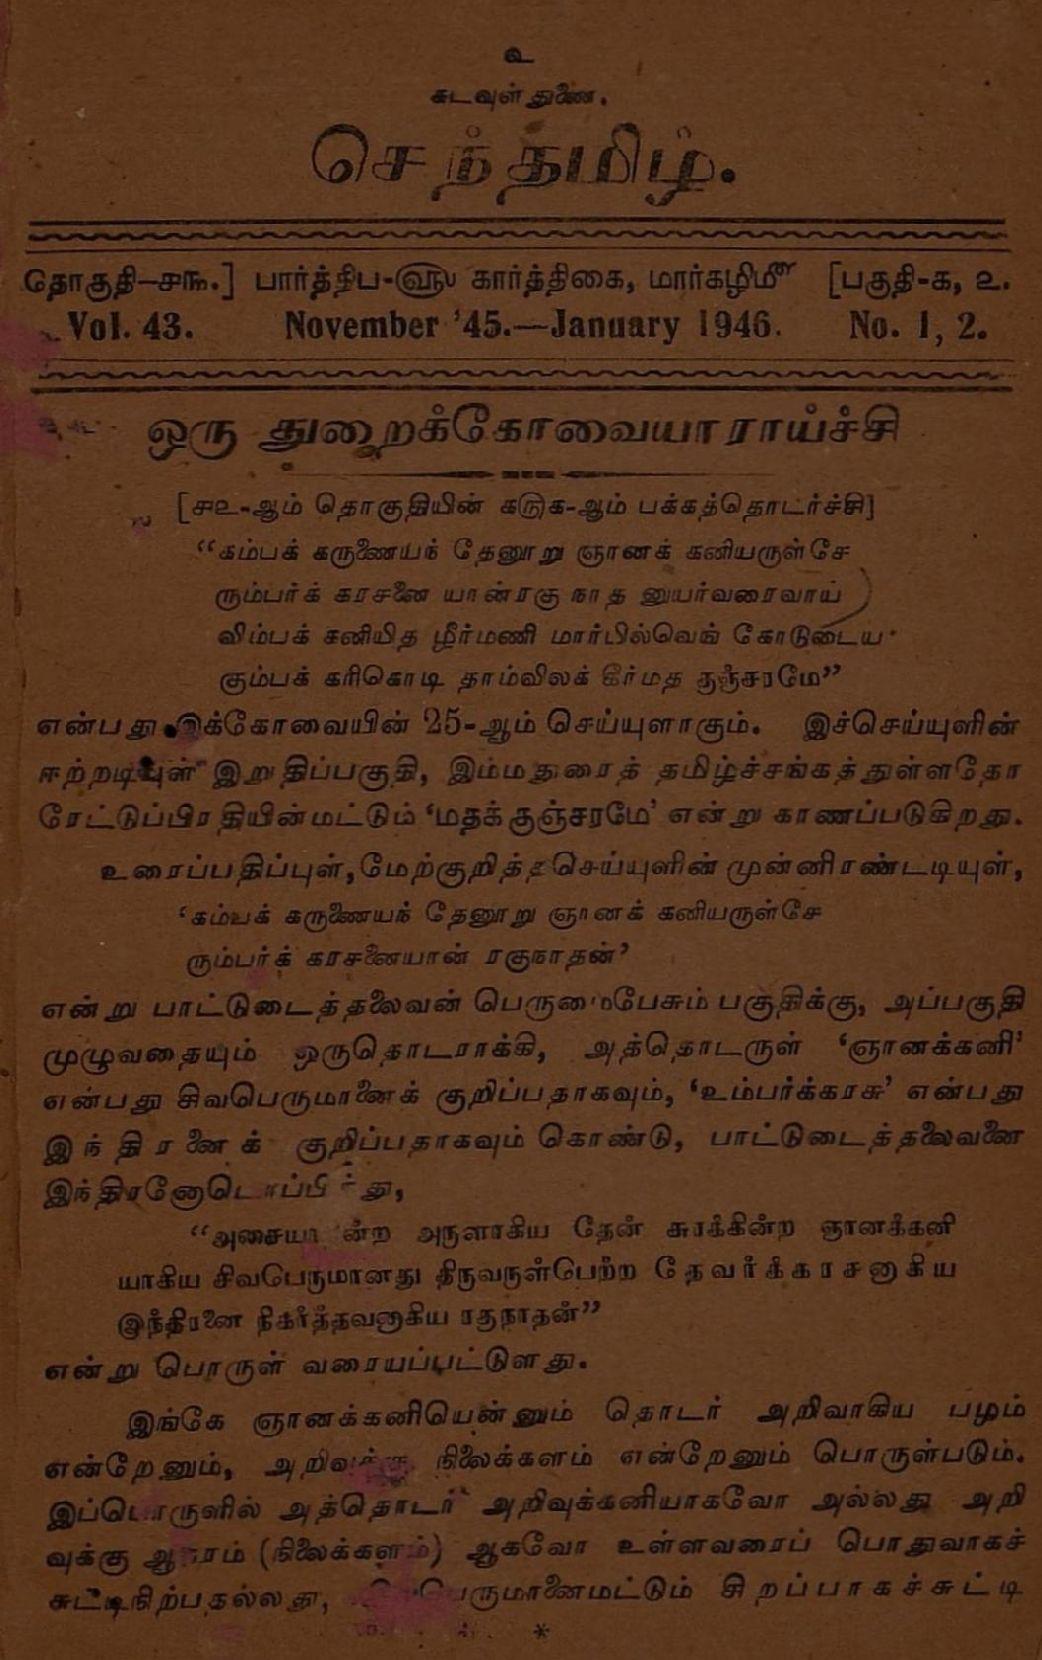 உ
கடவுள் துணை.
செந்தமிழ்.
தொகுதி—௪௩.] பார்த்திப-௵ கார்த்திகை, மார்கழி௴ [பகுதி-க, உ.
Vol. 43. November '45.—January 1946. No. 1, 2.
ஒரு துறைக்கோவையாராய்ச்சி
[௪௨-ஆம் தொகுதியின் ௧௫௧-ஆம் பக்கத்தொடர்ச்சி]
“கம்பக் கருணையந் தேனூறு ஞானக் கனியருள்சே
ரும்பர்க் கரசனை யான்ரகு நாத னுயர்வரைவாய்
விம்பக் கனியித ழீர்மணி மார்பில்வெங் கோடுடைய
கும்பக் கரிகொடி தாம்விலக் கீர்மத குஞ்சரமே”
என்பது இக்கோவையின் 25-ஆம் செய்யுளாகும். இச்செய்யுளின்
ஈற்றடியுள் இறுதிப்பகுதி, இம்மதுரைத் தமிழ்ச்சங்கத்துள்ளதோ
ரேட்டுப்பிரதியின்மட்டும் ‘மதக்குஞ்சரமே’ என்று காணப்படுகிறது.
உரைப்பதிப்புள், மேற்குறித்த செய்யுளின் முன்னிரண்டடியுள்,
‘கம்பக் கருணையந் தேனூறு ஞானக் கனியருள்சே
ரும்பர்க் கரசனையான் ரகுநாதன்’
என்று பாட்டுடைத்தலைவன் பெருமைபேசும் பகுதிக்கு, அப்பகுதி
முழுவதையும் ஒருதொடராக்கி, அத்தொடருள் ‘ஞானக்கனி’
என்பது சிவபெருமானைக் குறிப்பதாகவும், ‘உம்பர்க்கரசு’ என்பது
இந்திரனைக் குறிப்பதாகவும் கொண்டு, பாட்டுடைத்தலைவனை
இந்திரனோடொப்பித்து,
“அசையாநின்ற அருளாகிய தேன் சுரக்கின்ற ஞானக்கனி
யாகிய சிவபெருமானது திருவருள்பெற்ற தேவர்க்கரசனாகிய
இந்திரனை நிகர்த்தவனாகிய ரகுநாதன்”
என்று பொருள் வரையப்பட்டுளது.
இங்கே ஞானக்கனியென்னும் தொடர் அறிவாகிய பழம்
என்றேனும், அறிவுக்கு நிலைக்களம் என்றேனும் பொருள்படும்.
இப்பொருளில் அத்தொடர் அறிவுக்கனியாகவோ அல்லது அறி
வுக்கு ஆகரம் (நிலைக்களம்) ஆகவோ உள்ளவரைப் பொதுவாகச்
சுட்டிநிற்பதல்லது, சிவபெருமானைமட்டும் சிறப்பாகச்சுட்டி
*